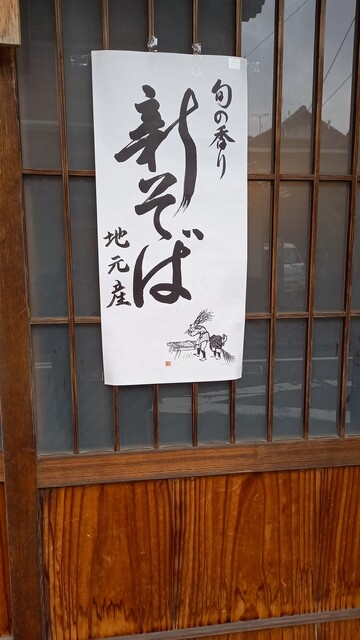 旬の香り
新そば
地元産